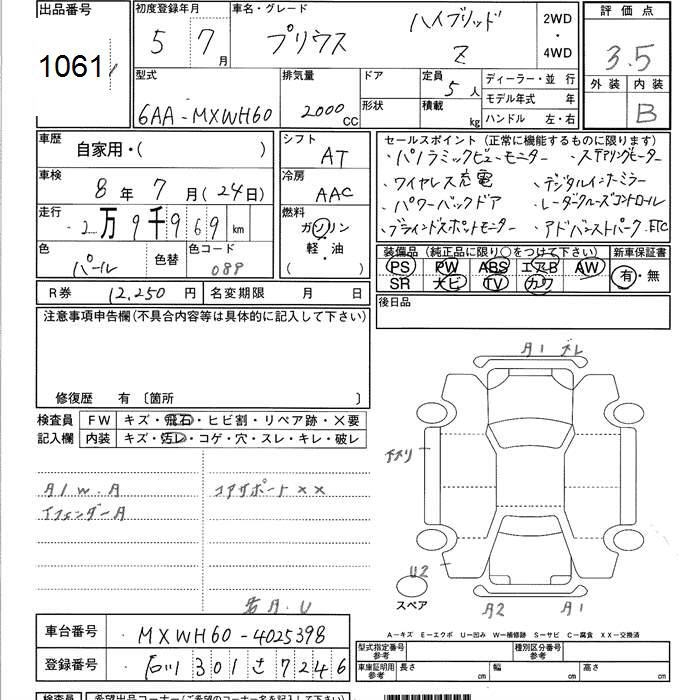 出品番号
1061
初度登録年月
5 7月
車名・グレード
プリウス ハイブリッド Z
2WD・4WD
評価点
3.5
外装 内装
B
型式
6AA-MXWH60
排気量
2000cc
ドア
形状
定員 5人
積載 kg
ディーラー・並行
モデル年式 年
ハンドル 左・右
車歴
自家用・( )
車検
8年 7月(24日)
走行
2万9千969km
色
パール
色替
色コード
089
シフト
AT
冷房
AAC
燃料
ガソリン
・
軽・油
( )
セールスポイント (正常に機能するものに限ります)
・パノラミックビューモニター ・ステアリングヒーター
・ワイヤレス充電 ・デジタルインナーミラー
・パワーバックドア ・レーダークルーズコントロール
・ブラインドスポットモニター ・アドバンストパーク.ETC
装備品(純正品に限り○をつけて下さい) 新車保証書
PS PW ABS エアB AW
SR ナビ TV カワ
有・無
R券 12,250円 名変期限 月 日
後日品
注意事項申告欄(不具合内容等は具体的に記入して下さい)
修復歴 有 〔箇所 〕
検査員記入欄
FW キズ・飛石・ヒビ割・リペア跡・X要
内装 キズ・汚レ・コゲ・穴・スレ・キレ・破レ
A1 ズレ
A1W.A
コアサポートXX
U2
スペア
A2 A1
A-キズ E-エクボ U-凹み W-補修跡 S-サビ C-腐食 XX-交換済
車台番号
MXWH60-4025398
登録番号
石川 301 さ 7246
型式指定番号 参考
種別区分番号 参考
車庫証明用 参考 長さ 幅 高さ
検査員
希望出品コーナー(ご希望のコーナー名を記入下さい)